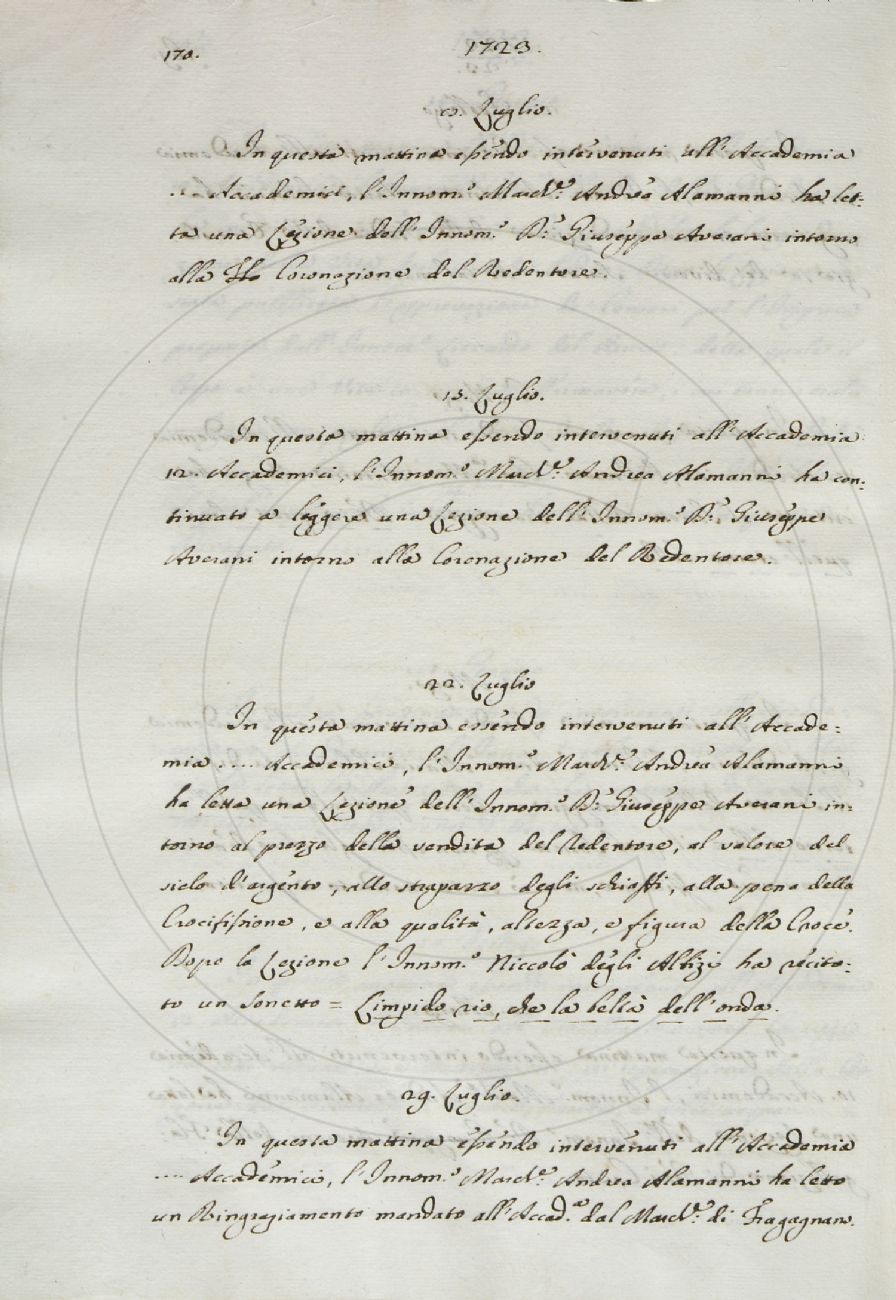 170.
1723.
Luglio.
In questa mattina essendo intervenuti all'Accademia
.... Accademici, l'Innom.º March.º Andrea Alamanni ha let-
ta una Lezione dell'Innom.º D.r Giuseppe Averani intorno
alla Coronazione del Redentore.
15. Luglio.
In questa mattina essendo intervenuti all'Accademia
12. Accademici, l'Innom.º March.º Andrea Alamanni ha con-
tinuato a leggere una Lezione dell'Innom.º D.r Giuseppe
Averani intorno alla Coronazione del Redentore.
22. Luglio
In questa mattina essendo intervenuti all'Accade-
mia .... Accademici, l'Innom.º March.º Andrea Alamanni
ha letta una Lezione dell'Innom.º D.r Giuseppe Averani in-
torno al prezzo della vendita del Redentore, al valore del
siclo d'argento, allo strapazzo degli schiaffi, alla pena della
Crocifissione, e alla qualità, altezza, e figura della Croce.
Dopo la Lezione l'Innom.º Niccolò degli Albizi ha recita-
to un Sonetto = Limpido rio, che la bella dell'onda.
29. Luglio.
In questa mattina essendo intervenuti all'Accademia
.... Accademici, l'Innom.º March.º Andrea Alamanni ha letto
un Ringraziamento mandato all'Accad.a dal March.º di Fragagnano.